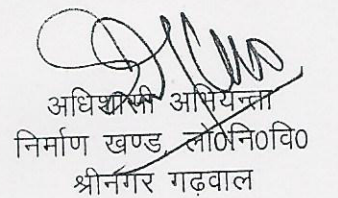 अधिशासी अभियन्ता
निर्माण खण्ड, लो0नि0वि0
श्रीनगर गढ़वाल